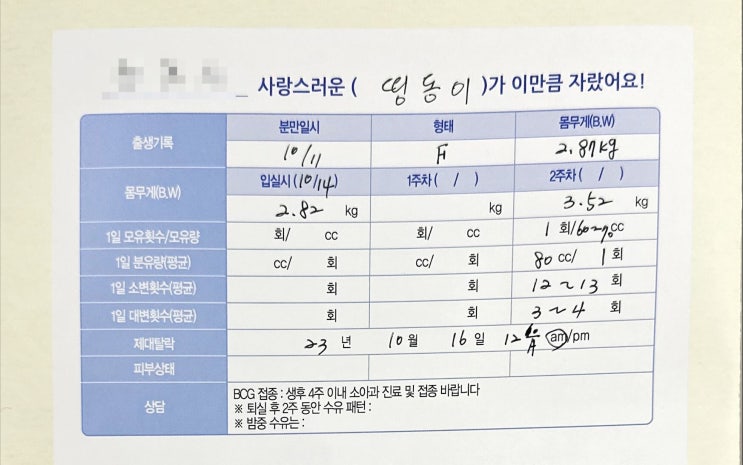 사랑스러운 ( 띵동이 )가 이만큼 자랐어요!
출생기록 분만일시 형태 몸무게(B.W)
10/11 F 2.87kg
몸무게(B.W) 입실시 (10/14) 1주차 ( / ) 2주차 ( / )
2.82 kg kg 3.52 kg
1일 모유횟수/모유량 회/ cc 회/ cc 1 회/60~70cc
1일 분유량(평균) cc/ 회 cc/ 회 80 cc/ 1 회
1일 소변횟수(평균) 회 회 12~13 회
1일 대변횟수(평균) 회 회 3~4 회
제대탈락 23 년 10 월 16 일 12 A am/pm
피부상태
상담 BCG 접종 : 생후 4주 이내 소아과 진료 및 접종 바랍니다
※ 퇴실 후 2주 동안 수유 패턴 :
※ 밤중 수유는 :